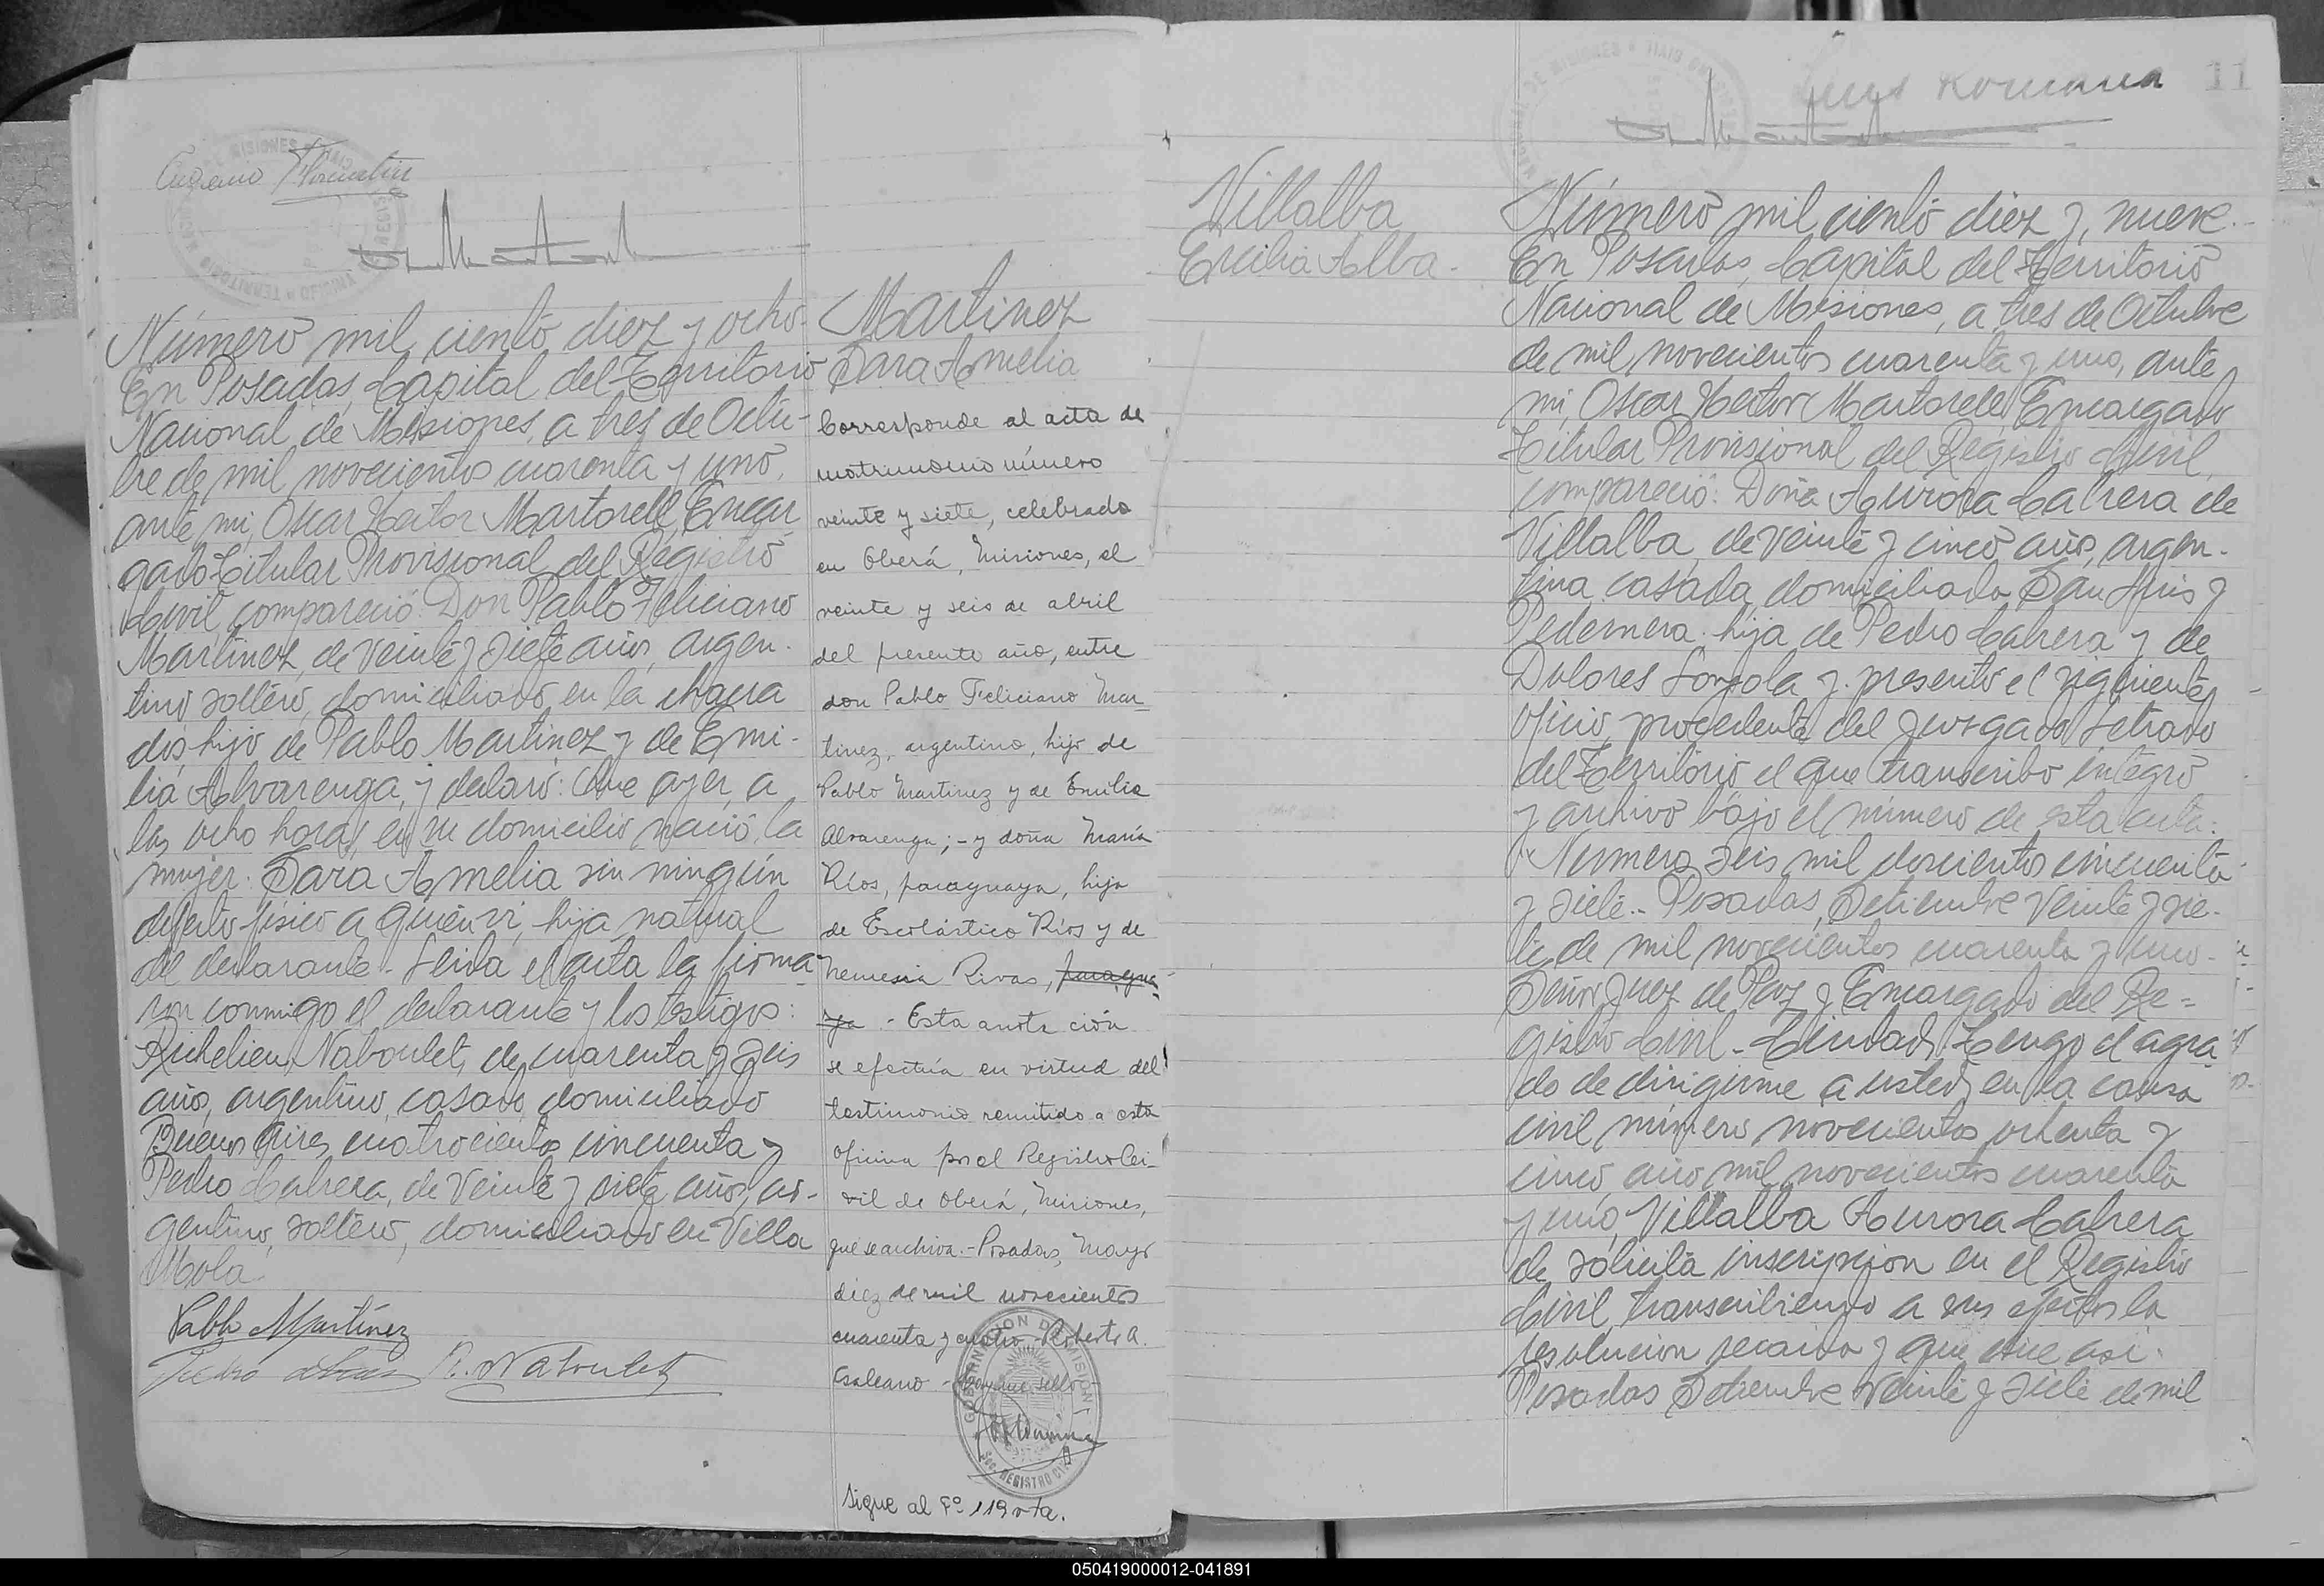 Número mil ciento diez y ocho.
En Posadas, Capital del Territorio
Nacional de Misiones, a tres de Octu-
bre de mil novecientos cuarenta y uno,
ante mi, Oscar Hector Martorell, Encar
gado Titular Provisional del Registro
Civil, compareció: Don Pablo Feliciano
Martinez, de veinte y siete años, argen-
tino soltero, domiciliado en la chacra
dos, hijo de Pablo Martinez y de Emi-
lia Alvarenga, y declaró: Que ayer, a
las ocho horas, en su domicilio nació la
mujer: Sara Amelia sin ningún
defecto físico a quien vi, hija natural
del declarante. Leida el acta la firma-
ron conmigo el declarante y los testigos:
Richelieu Naboulet, de cuarenta y seis
años, argentino, casado, domiciliado
Buenos Aires cuatrocientos cincuenta y
Pedro Cabrera, de veinte y siete años, ar-
gentino, soltero, domiciliado en Villa
Mola.
Pablo Martínez
R. Naboulet
Martinez
Sara Amelia
Corresponde al acta de
matrimonio número
veinte y siete, celebrado
en Oberá, Misiones, el
veinte y seis de abril
del presente año, entre
don Pablo Feliciano Mar-
tinez, argentino, hijo de
Pablo Martinez y de Emilia
Alvarenga; - y doña María
Ríos, paraguaya, hija
de Escolástico Ríos y de
Nemesia Rivas, paragua-
ya - Esta anota ción
se efectúa en virtud del
testimonio remitido a esta
Oficina por el Registro Ci-
vil de Oberá, Misiones,
que se archiva.- Posadas, Mayo
diez de mil novecientos
cuarenta y cuatro - Roberto A.
Galeano -
GOBERNACION DE MISIONES
SEC. REGISTRO CIVIL
Sigue al Fº 119 vta.
11
Villalba
Ercilia Alba.
Número mil ciento diez y nueve.-
En Posadas, Capital del Territorio
Nacional de Misiones, a tres de Octubre
de mil novecientos cuarenta y uno, ante
mi, Oscar Hector Martorell, Encargado
Titular Provisional del Registro Civil,
compareció: Doña Aurora Cabrera de
Villalba, de veinte y cinco años, argen-
tina casada, domiciliada San Luis y
Pedernera. hija de Pedro Cabrera y de
Dolores y presentó el siguiente
oficio, procedente del Juzgado Letrado
del Territorio el que transcribo integro
y archivo bajo el número de esta acta:
"Número seis mil doscientos cincuenta
y siete.- Posadas, Setiembre veinte y sie-
te de mil novecientos cuarenta y uno -
Señor Juez de Paz y Encargado del Re-
gistro Civil - Ciudad. Tengo el agra
do de dirigirme a usted, en la causa
civil número novecientos ochenta y
cinco, año mil novecientos cuarenta
y uno, Villalba Aurora Cabrera
de solicita inscripcion en el Registro
Civil, transcribiendo a sus efectos la
resolucion recaida y que dice asi:
Posadas Setiembre veinte y siete de mil
050419000012-041891